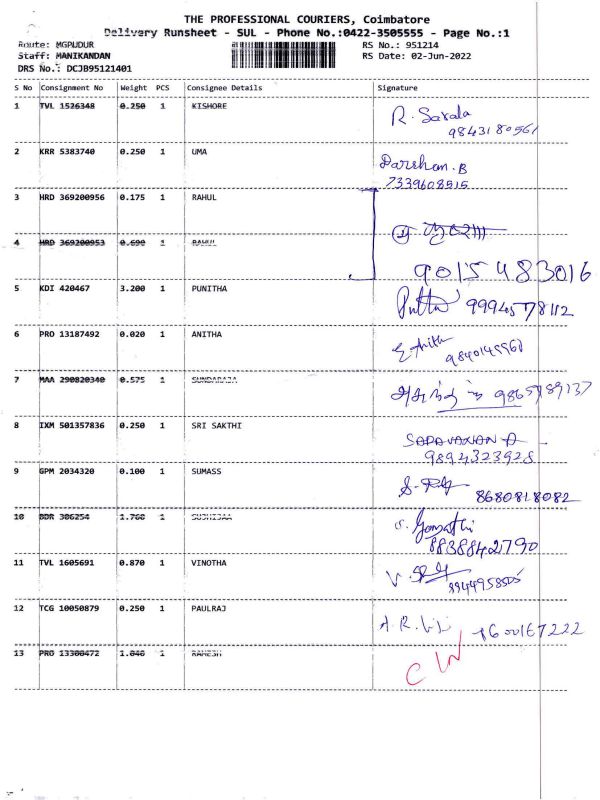 THE PROFESSIONAL COURIERS, Coimbatore
Delivery Runsheet - SUL - Phone No.:0422-3505555 - Page No.:1
Route: MGPUDUR RS No.: 951214
Staff: MANIKANDAN RS Date: 02-Jun-2022
DRS No.: DCJB95121401
S No Consignment No Weight PCS Consignee Details Signature
1 TVL 1526348 0.250 1 KISHORE R. Sarala
9843180561
2 KRR 5383740 0.250 1 UMA Darshan.B
7339608515
3 HRD 369200956 0.175 1 RAHUL
4 HRD 369200953 0.690 1 RAHUL
9015483016
5 KDI 420467 3.200 1 PUNITHA 9994578112
6 PRO 13187492 0.020 1 ANITHA
7 MAA 290820340 0.575 1 SUNDARAJA
8 IXM 501357836 0.250 1 SRI SAKTHI SARAVANAN
9894323928
9 GPM 2034320 0.100 1 SUMASS 8680818082
10 BDR 306254 1.760 1 Gomathi
8838842790
11 TVL 1605691 0.870 1 VINOTHA
12 TCG 10050879 0.250 1 PAULRAJ
13 PRO 13300472 1.040 1 RAMESH